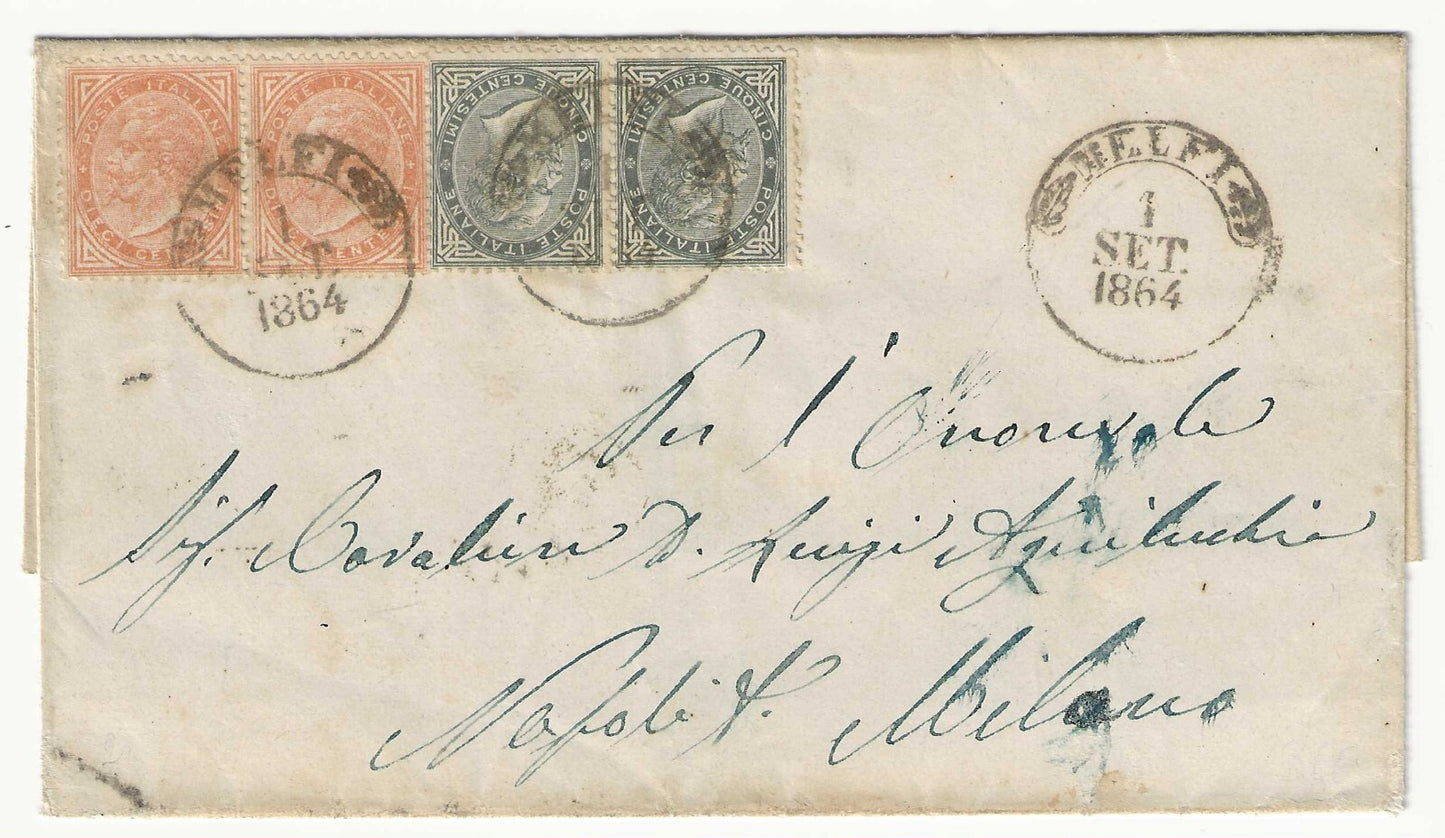 POSTE ITALIANE
DIECI CENTESIMI
POSTE ITALIANE
DIECI CENTESIMI
CINQUE CENTESIMI
POSTE ITALIANE
CINQUE CENTESIMI
POSTE ITALIANE
MELFI
1
SET.
1864
MELFI
1
SET.
1864
Per l'Onorevole
Sig. Cavaliere D. Luigi Aquilecchia
Napoli p. Milano